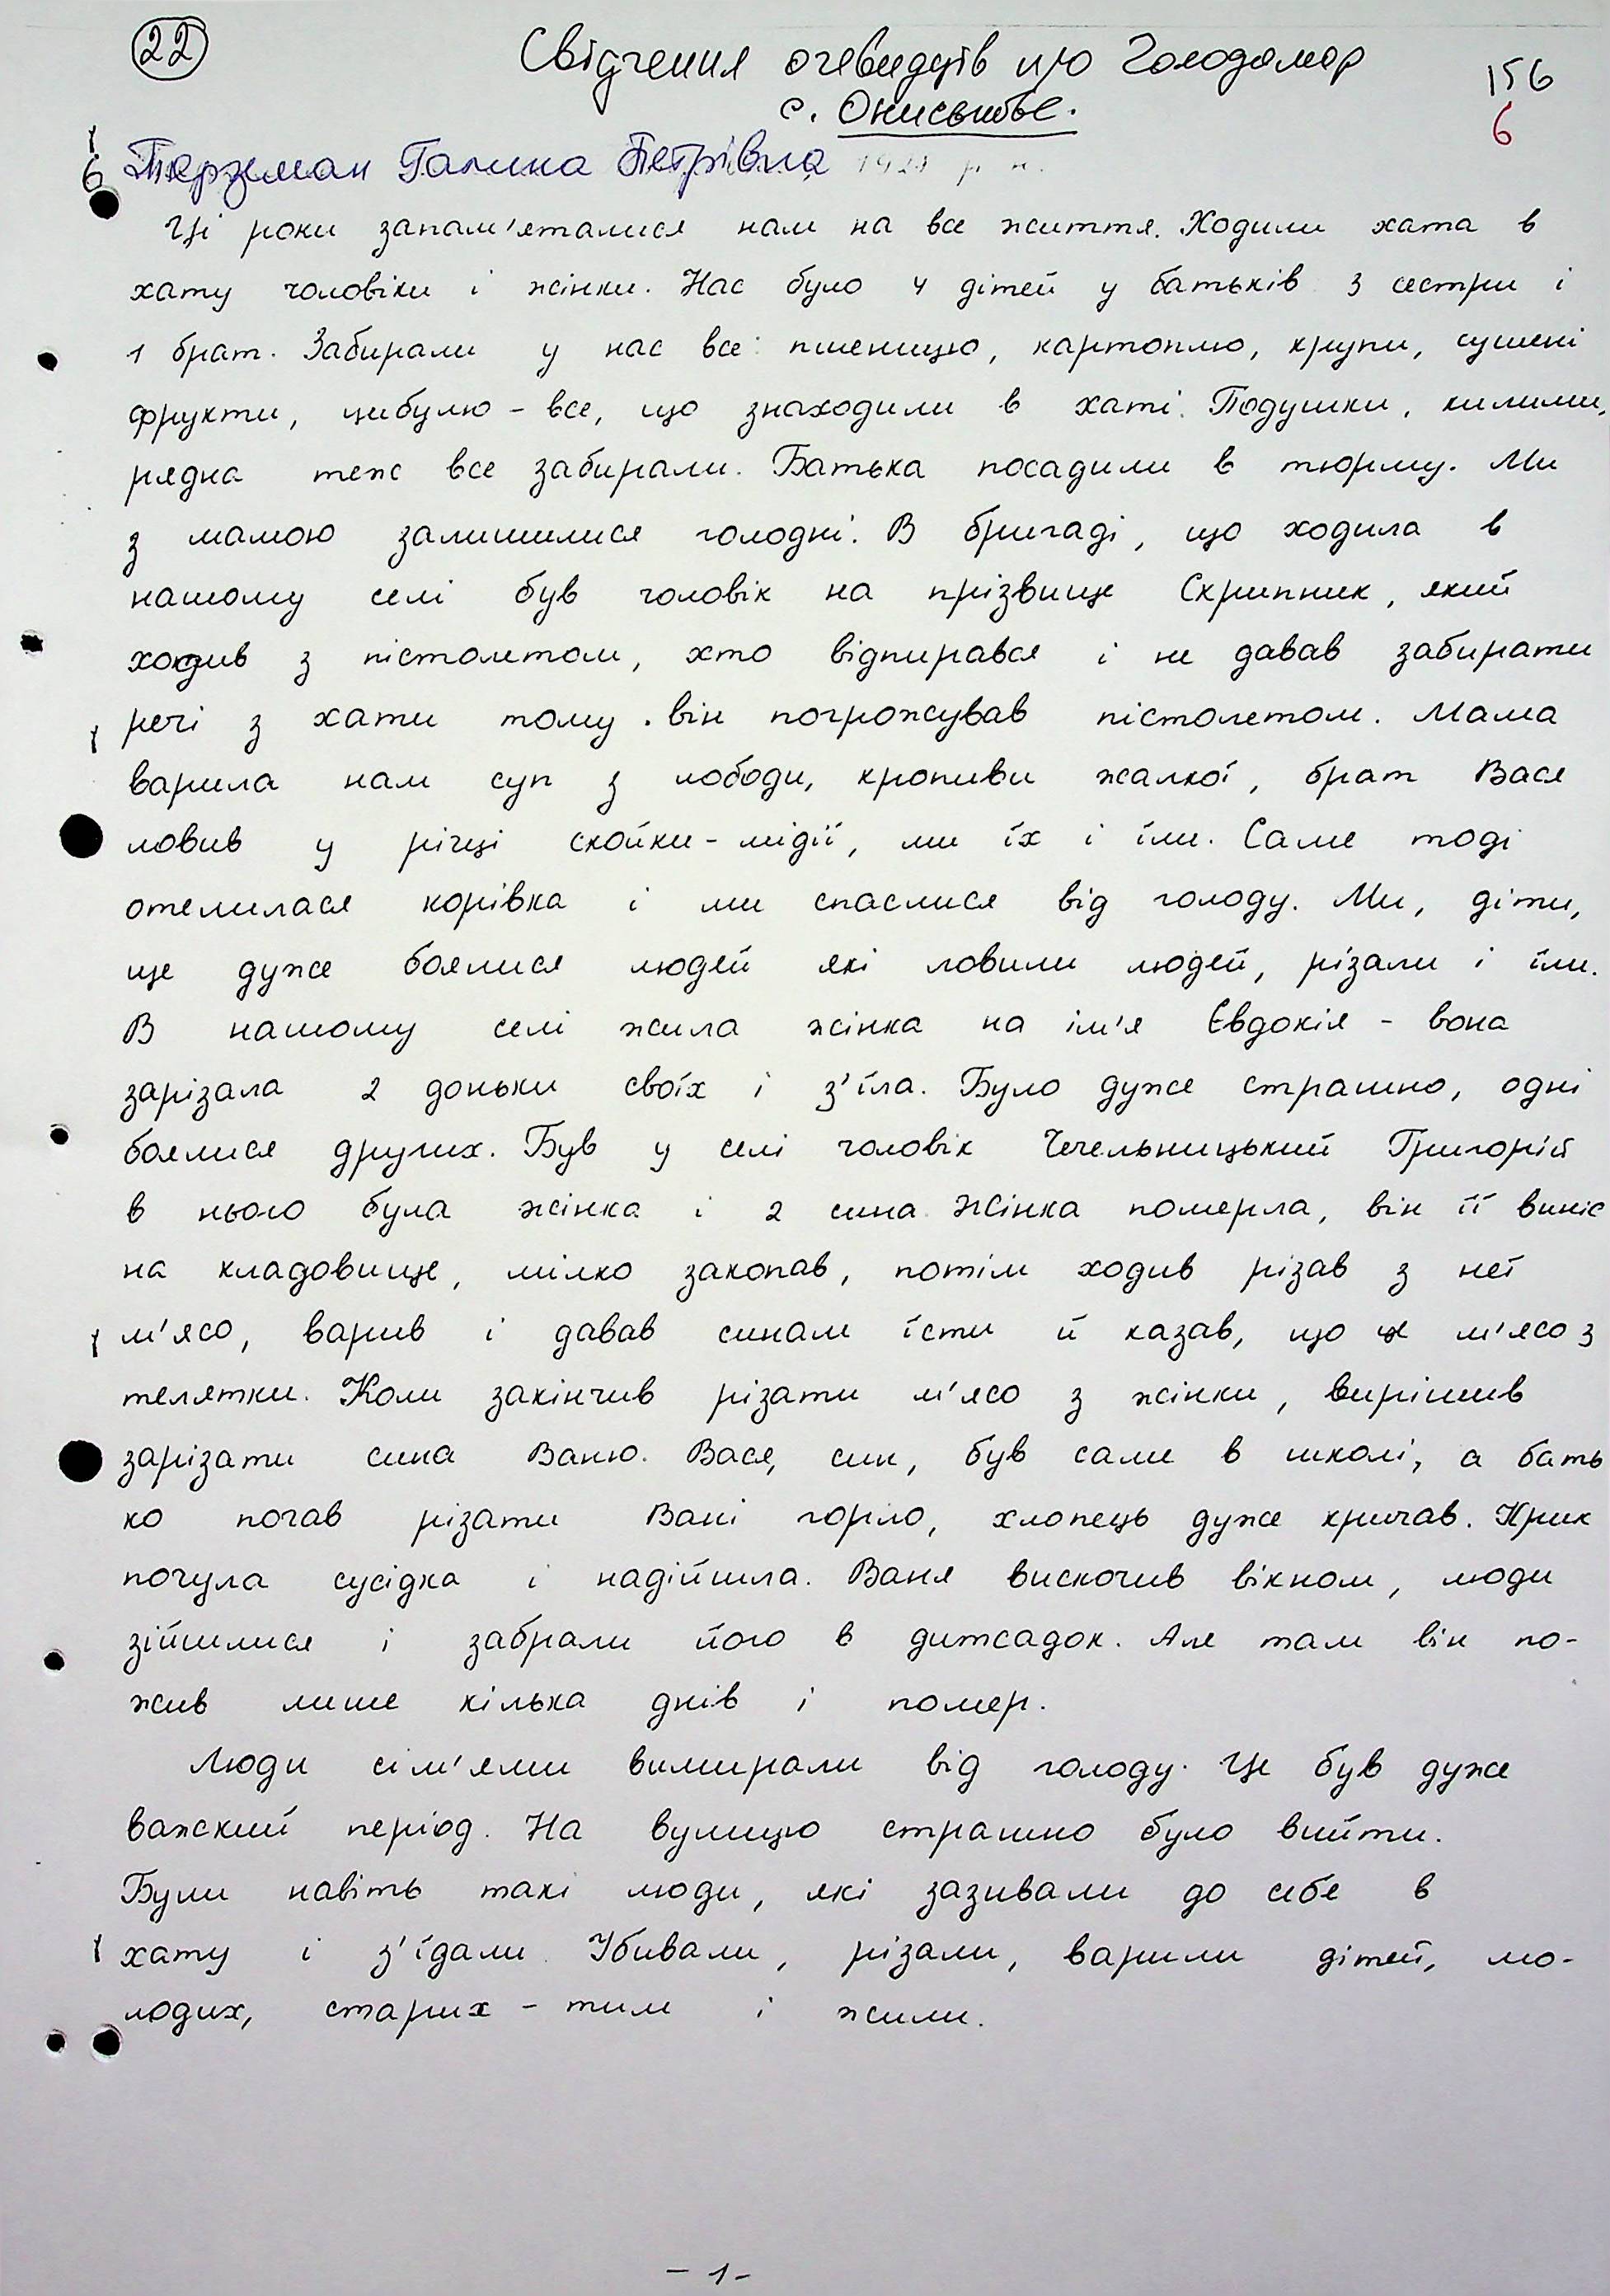 22
Свідчення очевидців про Голодомор
с. Ониськіве.
156
6
6 Терземан Галина Петрівна 1923 р н.
Ці роки запам'яталися нам на все життя. Ходили хата в
хату чоловіки і жінки. Нас було 4 дітей у батьків 3 сестри і
1 брат. Забирали у нас все: пшеницю, картоплю, крупи, сушені
фрукти, цибулю - все, що знаходили в хаті. Подушки, килими,
рядна теж все забирали. Батька посадили в тюрму. Ми
з мамою залишилися голодні. В бригаді, що ходила в
нашому селі був чоловік на прізвище Скрипник, який
ходив з пістолетом, хто відпирався і не давав забирати
речі з хати тому він погрожував пістолетом. Мама
варила нам суп з лободи, кропиви жалкої, брат Вася
ловив у річці скойки-мідії, ми їх і їли. Саме тоді
отелилася корівка і ми спаслися від голоду. Ми, діти,
ще дуже боялися людей які ловили людей, різали і їли.
В нашому селі жила жінка на ім'я Євдокія - вона
зарізала 2 доньки своїх і з'їла. Було дуже страшно, одні
боялися других. Був у селі чоловік Чечельницький Григорій
в нього була жінка і 2 сина. Жінка померла, він її виніс
на кладовище, мілко закопав, потім ходив різав з неї
м'ясо, варив і давав синам їсти й казав, що м'ясо з
телятки. Коли закінчив різати м'ясо з жінки, вирішив
зарізати сина Ваню. Вася, син, був саме в школі, а бать
ко почав різати Вані горло, хлопець дуже кричав. Крик
почула сусідка і надійшла. Ваня вискочив вікном, люди
зійшлися і забрали його в дитсадок. Але там він по-
жив лише кілька днів і помер.
Люди сім'ями вимирали від голоду. Це був дуже
важкий період. На вулицю страшно було вийти.
Були навіть такі люди, які зазивали до себе в
хату і з'їдали. Убивали, різали, варили дітей, мо-
лодих, старих - тим і жили.
- 1 -